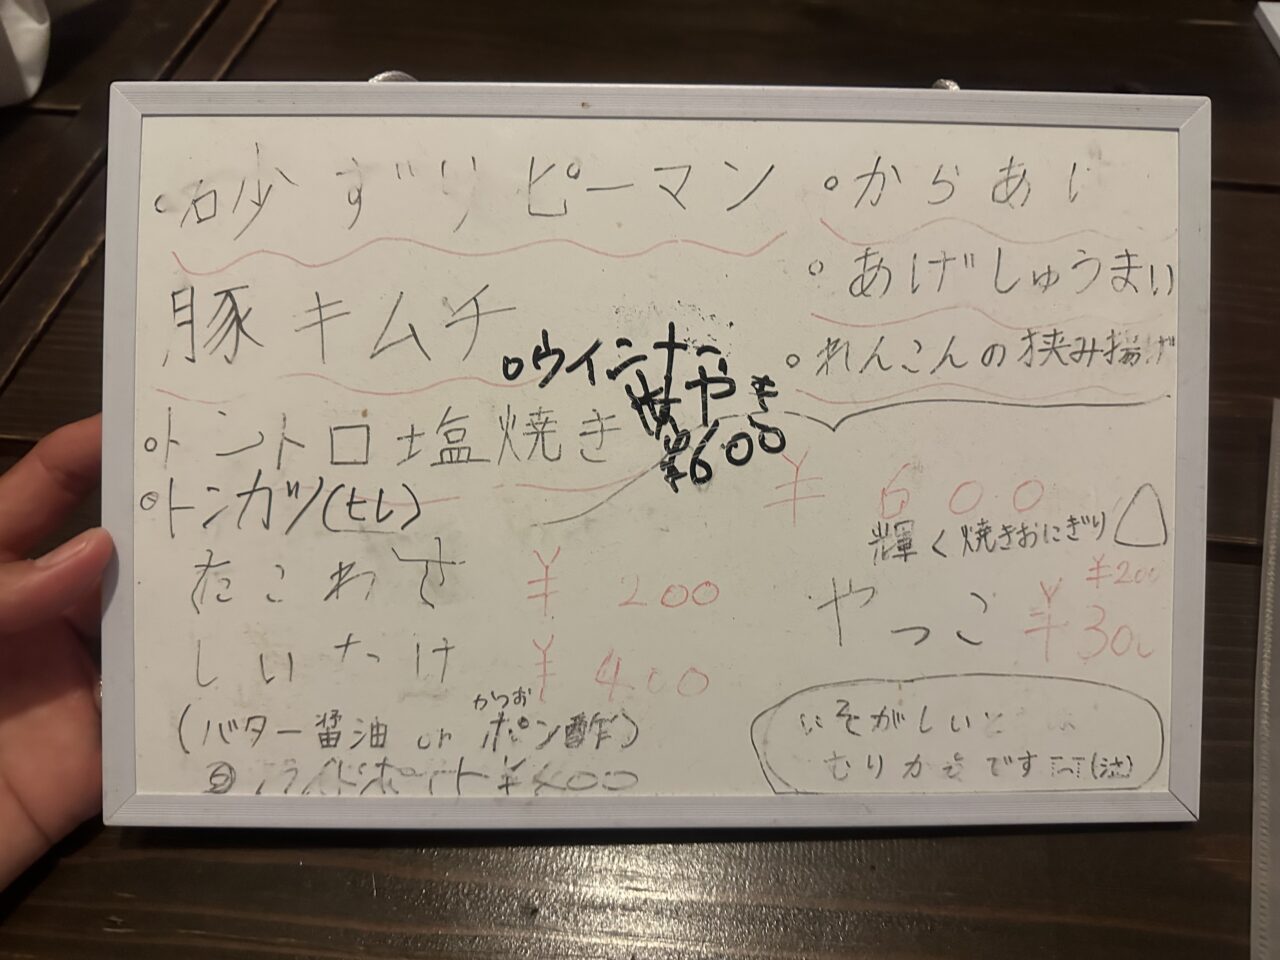 ○砂ずりピーマン
○からあげ
○あげしゅうまい
豚キムチ
○れんこんの挟み揚げ
○ウインナー
焼やき
¥600
○トントロ塩焼き
¥600
○トンカツ(ヒレ)
輝く焼きおにぎり
¥200
たこわさ ¥200
やっこ ¥300
しいたけ ¥400
(バター醤油 or ポン酢)
かつお
フライドポテト ¥400
いそがしいと
むりかもです